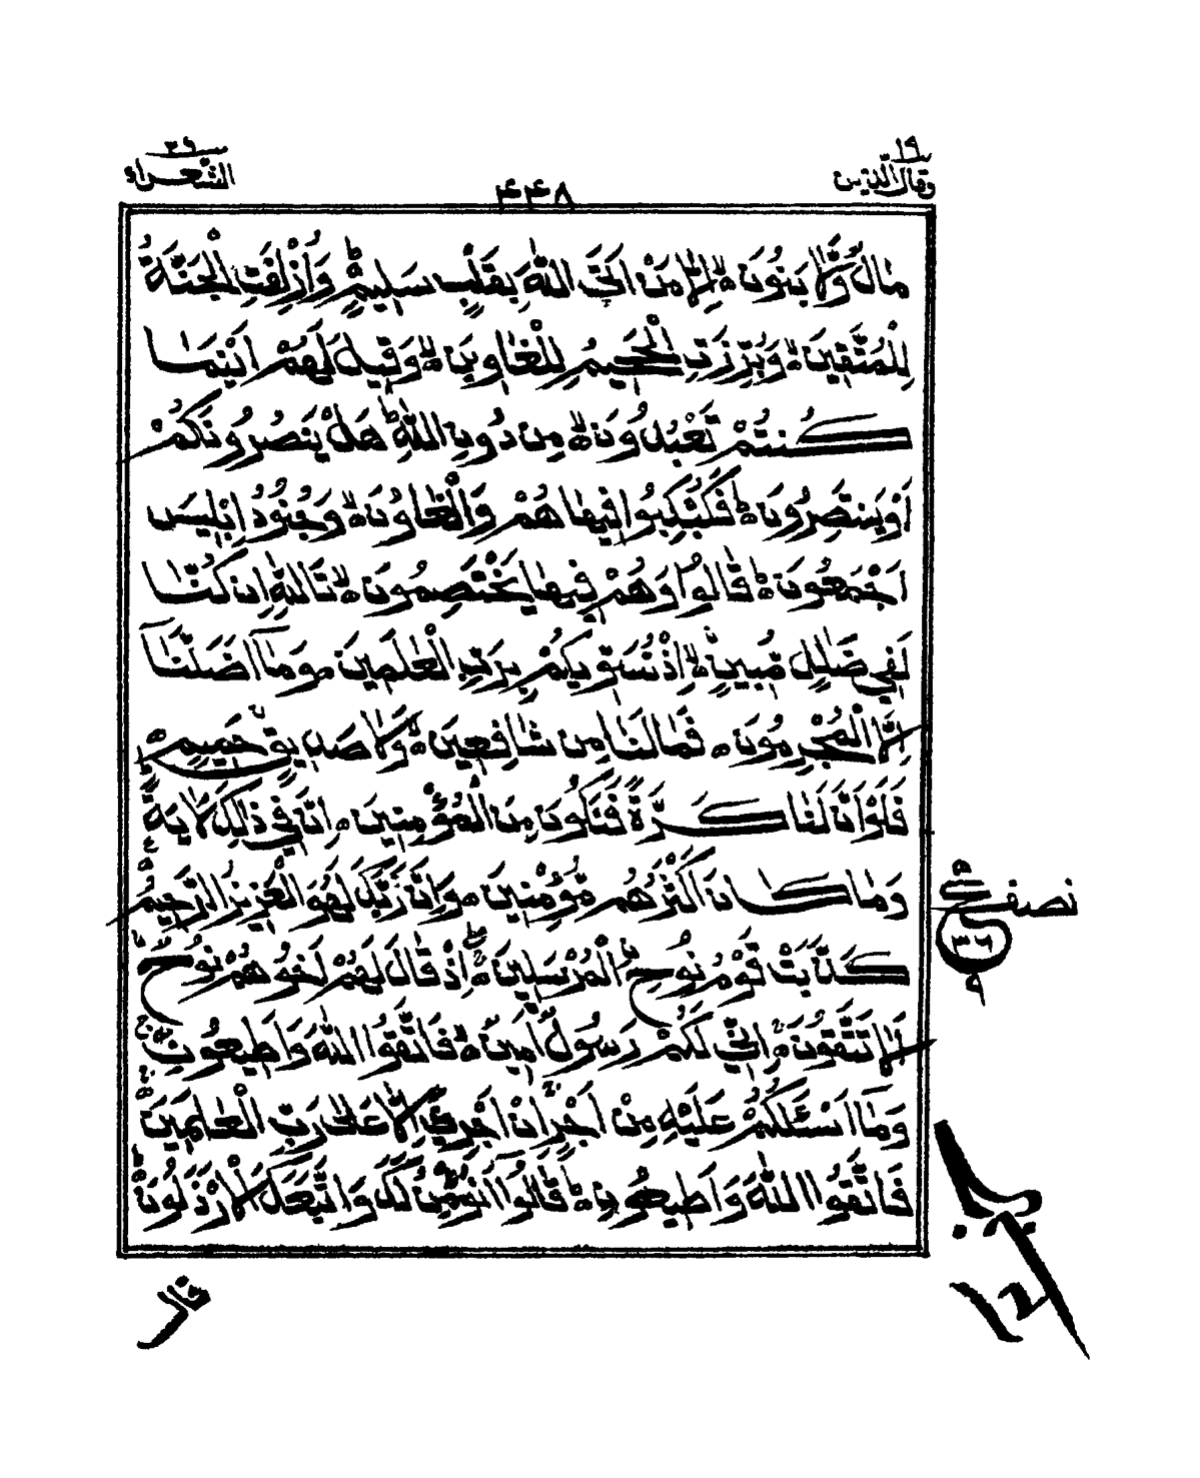 ١٩
وقال الذين
٤٤٨
٢٦
الشعراء
مَالٌ وَّلَا بَنُوْنَ ۙ اِلَّا مَنْ اَتَى اللّٰهَ بِقَلْبٍ سَلِيْمٍ ؕ وَاُزْلِفَتِ الْجَنَّةُ
لِلْمُتَّقِيْنَ ۙ وَبُرِّزَتِ الْجَحِيْمُ لِلْغٰوِيْنَ ۙ وَقِيْلَ لَهُمْ اَيْنَمَا
كُنْتُمْ تَعْبُدُوْنَ ۙ مِنْ دُوْنِ اللّٰهِ ؕ هَلْ يَنْصُرُوْنَكُمْ
اَوْ يَنْتَصِرُوْنَ ؕ فَكُبْكِبُوْا فِيْهَا هُمْ وَالْغَاوٗنَ ۙ وَجُنُوْدُ اِبْلِيْسَ
اَجْمَعُوْنَ ؕ قَالُوْا وَهُمْ فِيْهَا يَخْتَصِمُوْنَ ۙ تَاللّٰهِ اِنْ كُنَّا
لَفِيْ ضَلٰلٍ مُّبِيْنٍ ۙ اِذْ نُسَوِّيْكُمْ بِرَبِّ الْعٰلَمِيْنَ وَمَآ اَضَلَّنَآ
اِلَّا الْمُجْرِمُوْنَ فَمَا لَنَا مِنْ شَافِعِيْنَ ۙ وَلَا صَدِيْقٍ حَمِيْمٍ
فَلَوْ اَنَّ لَنَا كَرَّةً فَنَكُوْنَ مِنَ الْمُؤْمِنِيْنَ اِنَّ فِيْ ذٰلِكَ لَاٰيَةً
وَمَا كَانَ اَكْثَرُهُمْ مُّؤْمِنِيْنَ وَاِنَّ رَبَّكَ لَهُوَ الْعَزِيْزُ الرَّحِيْمُ
نصف
٣٦
٩
كَذَّبَتْ قَوْمُ نُوْحِ ۨالْمُرْسَلِيْنَ ۚ اِذْ قَالَ لَهُمْ اَخُوْهُمْ نُوْحٌ
اَلَا تَتَّقُوْنَ ۚ اِنِّيْ لَكُمْ رَسُوْلٌ اَمِيْنٌ ۙ فَاتَّقُوا اللّٰهَ وَاَطِيْعُوْنِ
وَمَآ اَسْـَٔلُكُمْ عَلَيْهِ مِنْ اَجْرٍ ۚ اِنْ اَجْرِيَ اِلَّا عَلٰى رَبِّ الْعٰلَمِيْنَ
فَاتَّقُوا اللّٰهَ وَاَطِيْعُوْنِ ؕ قَالُوْٓا اَنُؤْمِنُ لَكَ وَاتَّبَعَكَ الْاَرْذَلُوْنَ
قال